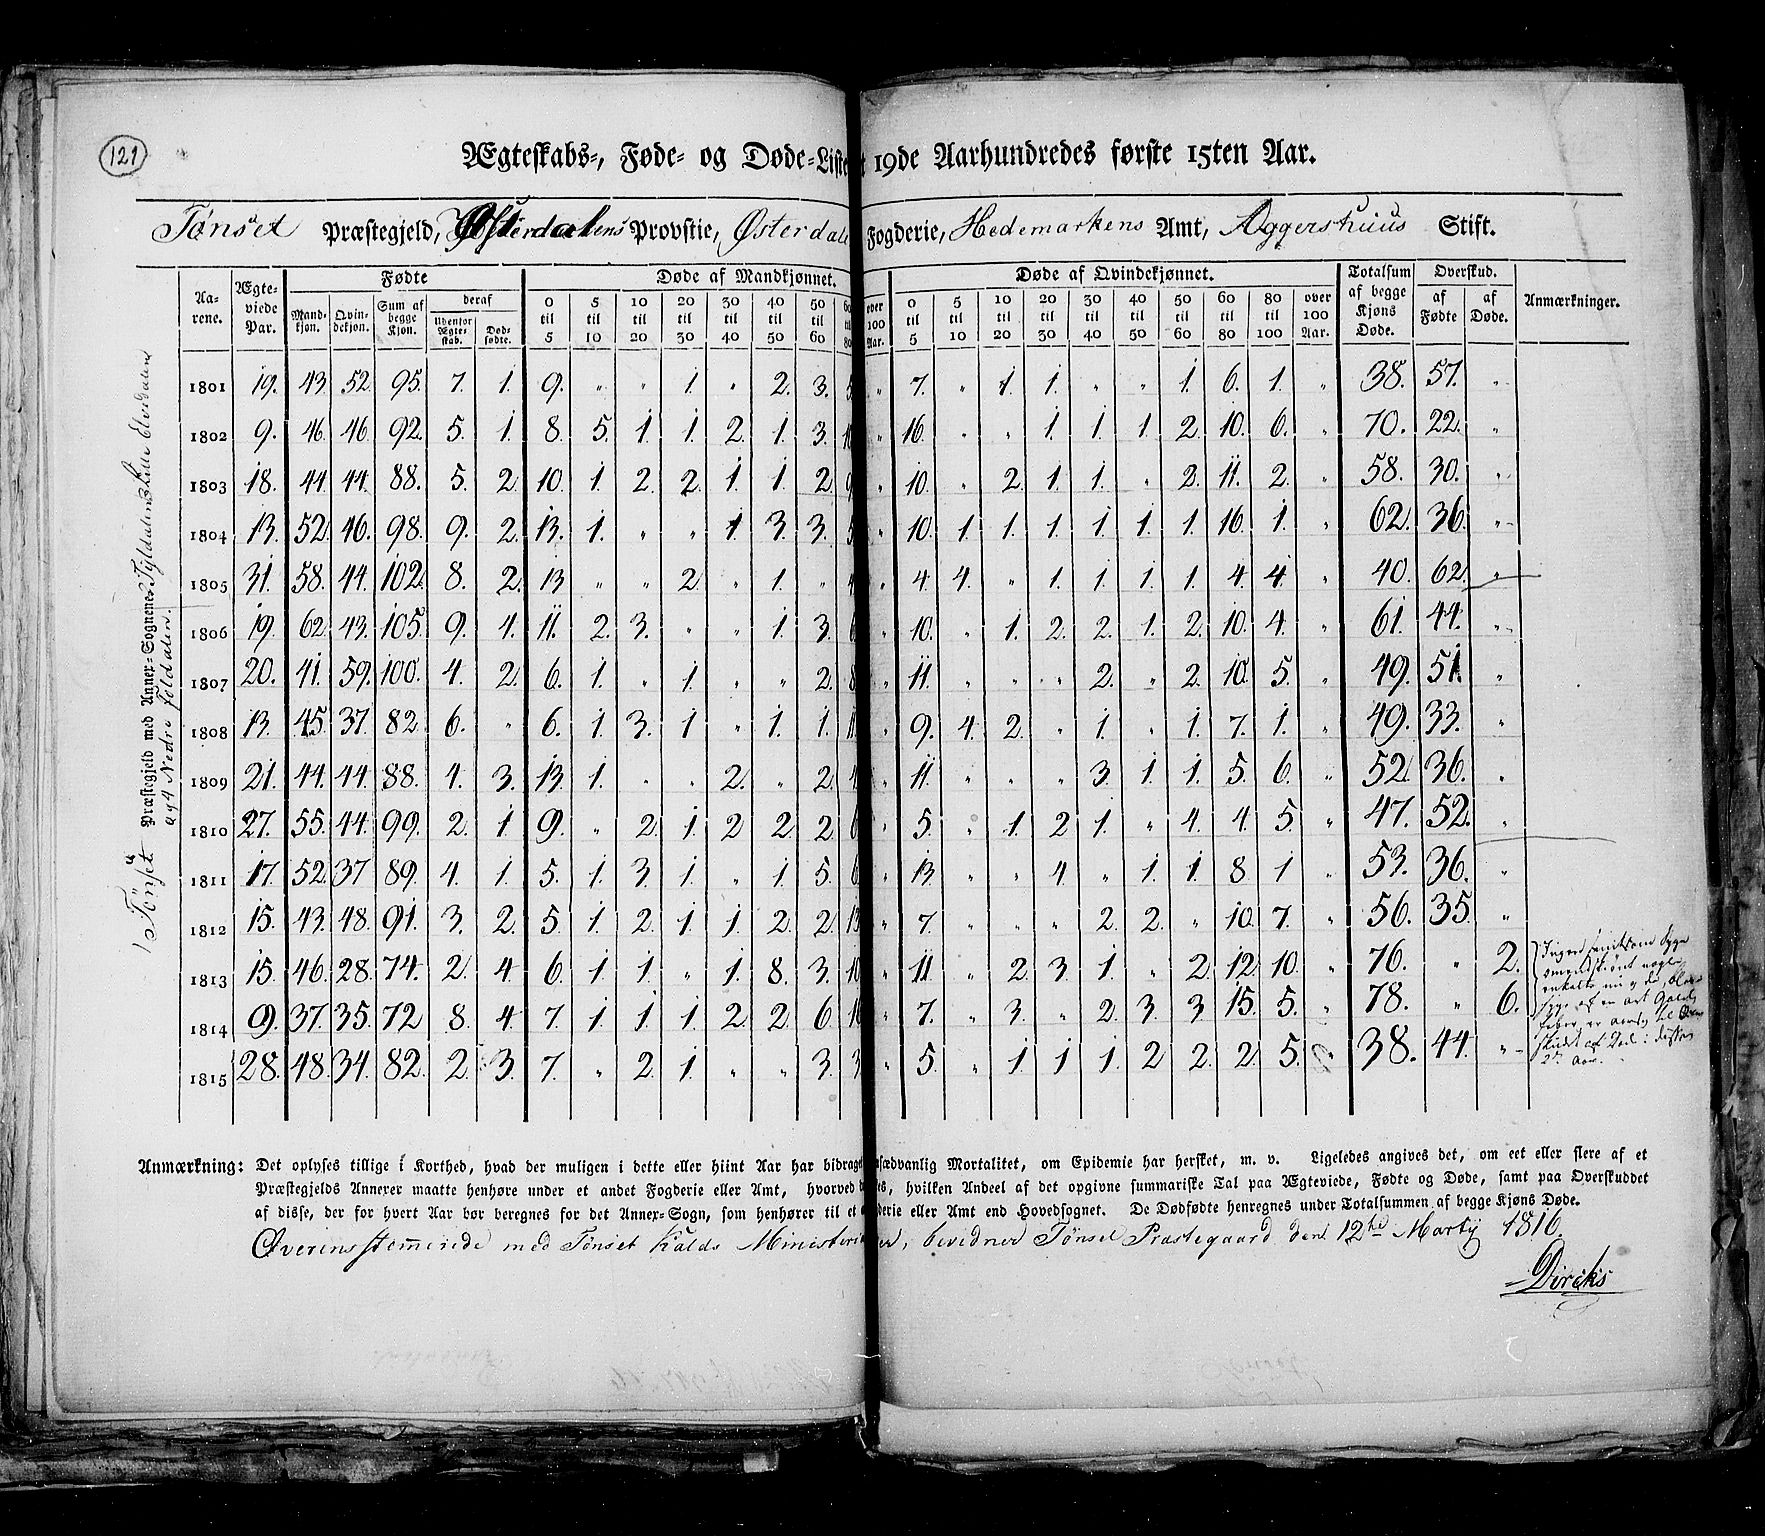 121
Ægteskabs-, Føde- og Døde-Liste 19de Aarhundredes første 15ten Aar.
Tønset Præstegjeld, Østerdalens Provstie, Østerdale Fogderie, Hedemarkens Amt, Aggershuus Stift.
Aarene. Ægteviede Par. Fødte Døde af Mandkjønnet. Døde af Qvindekjønnet. Totalsum af begge Kjøns Døde. Overskud. Anmærkninger.
Mandkjøn. Qvindekjøn. Sum af begge Kjøn. deraf Udenfor Ægtestab. Dødfødte. 0 til 5 5 til 10 10 til 20 20 til 30 30 til 40 40 til 50 50 til 60 60 til 80 over 100 Aar. 0 til 5 5 til 10 10 til 20 20 til 30 30 til 40 40 til 50 50 til 60 60 til 80 80 til 100 over 100 Aar. af Fødte af Døde.
1801 19. 43 52. 95. 7. 1. 9. " " 1. " 2. 3. 5 " 7. " 1. 1. " " 1. 6. 1. " 38. 57. "
1802 9. 46. 46. 92. 5. 1. 8. 5. 1. 1. 2. 1. 3. 10 " 16. " " 1. 1. 1. 2. 10. 6. " 70. 22. "
1803 18. 44. 44. 88. 5. 2. 10. 1. 2. 2. 1. 1. 2. 9 " 10. " 2. 1. 1. " 2. 11. 2. " 58. 30. "
1804 13. 52. 46. 98. 9. 2. 13. 1. " " 1 3. 3. 5 " 10. 1. 1. 1. 1. 1. 1. 16. 1. " 62. 36. "
1805 31. 58. 44. 102. 8. 2. 13 " " 2. " 1. " 4 " 4. 4. " 1. 1. 1. 1. 4. 4. " 40. 62. "
1806 19. 62. 43. 105. 9. 1. 11. 2. 3. " " 1. 3. 6 " 10. " 1. 2. 2. 1. 2. 10. 4. " 61. 44. "
1807 20. 41. 59. 100. 4. 2. 6. 1. " 1. " " 2. 8 " 11. " " " 2. " 2. 10. 5. " 49. 51. "
1808 13. 45. 37. 82. 6. " 6. 1. 3. 1. " 1. 1. 11 " 9. 4. 2. " 1. " 1. 7. 1. " 49. 33. "
1809 21. 44. 44. 88. 4. 3. 13. 1. " " 2. " 2. 4 " 11. " " " 3. 1. 1. 5. 6. " 52. 36. "
1810 27. 55. 44. 99. 2. 1. 9. " 2. 1. 2 2 2. 6 " 5. " 1. 2 1. " 4. 4. 5. " 47. 52. "
1811 17. 52. 37 89. 4. 1. 5. 1. 3. 1. " 1. 5. 6 " 13. " " 4. " 1. 1. 8 1 " 53. 36. "
1812 15. 43. 48. 91. 3. 2. 5. 1. 2. 1. 1. 2. 2. 13 " 7. " " " 2. 2. " 10. 7. " 56. 35. "
1813 15. 46. 28. 74. 2. 4. 6. 1. 1. " 1. 8. 3. 10 " 11. " 2. 3. 1. " 2. 12. 10. " 76. " 2.
1814 9. 37. 35. 72 8. 4. 7. 1. 1. 1. 2. 2. 6. 16 " 7. " 3. " 2. 3 3. 15. 5. " 78. " 6.
1815 28. 48. 34. 82. 2. 3. 7. " 2. 1. " " 3. 3 " 5. " 1. 1. 1. 2 2. 2. 5. 38. 44. "
Tønset Præstegjeld med Annex-Sognene: Tyldalen Lille Elvedalen
og Nedre Foldalen.
2de Aar.
Anmærkning: Det oplyses tillige i Korthed, hvad der muligen i dette eller hiint Aar har bidraget sædvanlig Mortalitet, om Epidemie har hersket, m. v. Ligeledes angives det, om eet eller flere af et
Præstegjelds Annexer maatte henhøre under et andet Fogderie eller Amt, hvorved es, hvilken Andeel af det opgivne summariske Tal paa Ægteviede, Fødte og Døde, samt paa Overskuddet
af disse, der for hvert Aar bør beregnes for det Annex-Sogn, som henhører til et derie eller Amt end Hovedsognet. De Dødfødte henregnes under Totalsummen af begge Kjøns Døde.
Overensstemmende med Tønset Kalds Ministeri er, bevidner Tønset Præstegaard den 12te Martij 1816.
Dircks